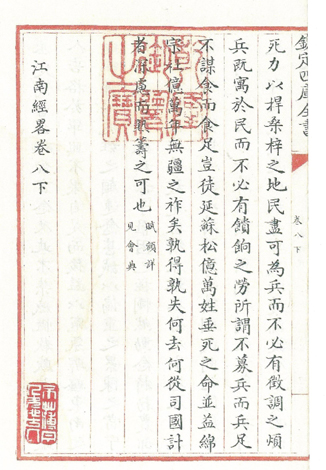 欽定四庫全書
卷八下
死力以捍桑梓之地民盡可為兵而不必有徵調之煩
兵既寓於民而不必有饋餉之勞所謂不募兵而兵足
不謀食而食足豈徒延蘇松億萬姓垂死之命並益綿
宗社億萬年無疆之祚矣孰得孰失何去何從司國計
者深慮而熟籌之可也 賦額詳
見會典
江南經畧卷八下